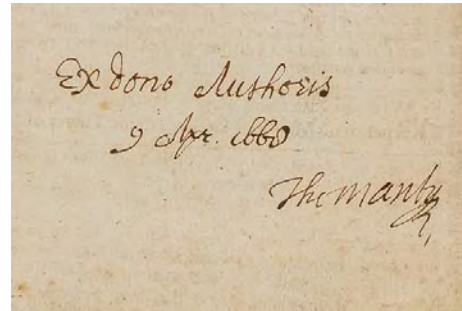 Ex dono Authoris
9 Apr. 1668
Tho Manby